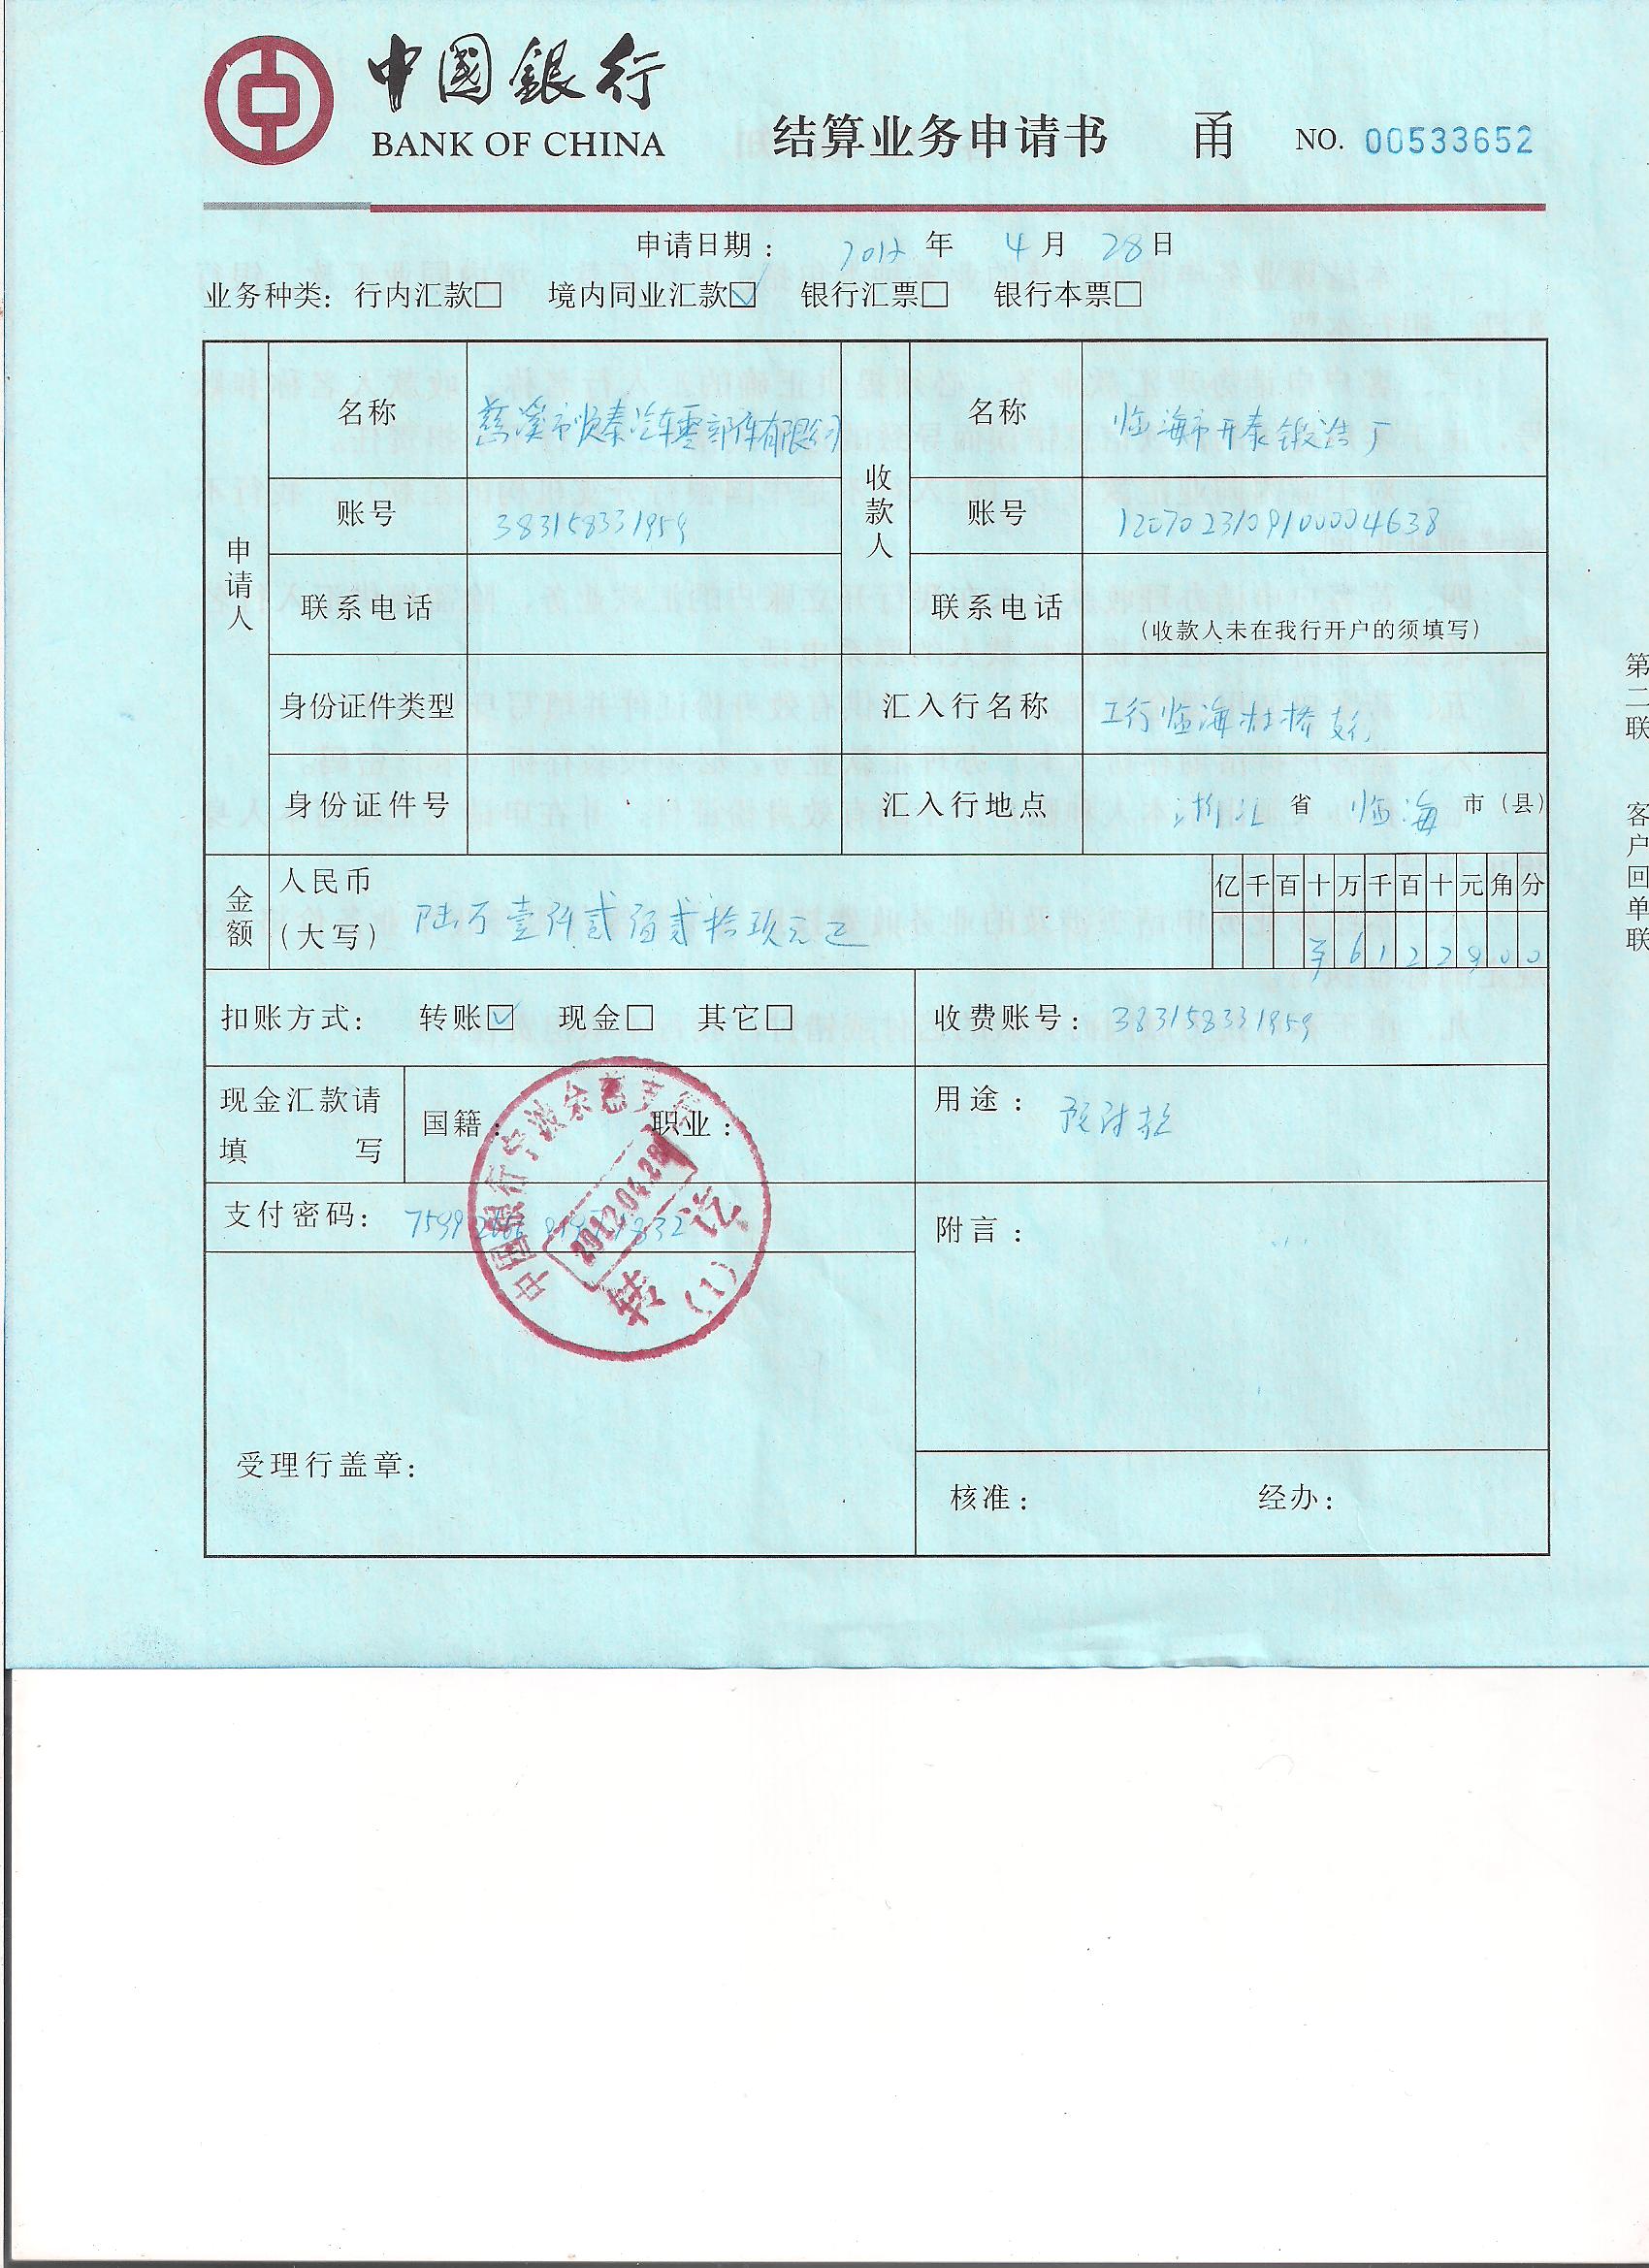 中國銀行
BANK OF CHINA
结算业务申请书 甬 NO. 00533652
申请日期： 2012 年 4 月 28 日
业务种类：行内汇款□ 境内同业汇款☑ 银行汇票□ 银行本票□
申请人
名称 慈溪市顺泰汽车零部件有限公司
收款人
名称 临海市开泰锻造厂
账号 383158331959
账号 1207023109100004638
联系电话
联系电话 (收款人未在我行开户的须填写)
身份证件类型
汇入行名称 工行临海杜桥支行
身份证件号
汇入行地点 浙江 省 临海 市(县)
金额
人民币
(大写) 陆万壹仟贰佰贰拾玖元正
亿千百十万千百十元角分
¥6122900
扣账方式： 转账☑ 现金□ 其它□
收费账号：383158331959
现金汇款请
填 写
国籍： 职业：
用途：
支付密码：
附言：
中国银行宁波余慈支行
2012.04.28
转讫
(1)
受理行盖章：
核准： 经办：
第二联 客户回单联